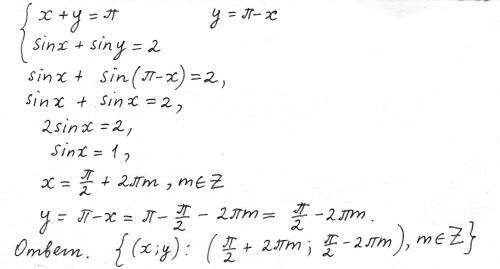 { x + y = π          y = π - x
sin x + sin y = 2
sin x + sin(π-x) = 2,
sin x + sin x = 2,
2 sin x = 2,
sin x = 1,
x = π/2 + 2πm, m ∈ Z
y = π - x = π - π/2 - 2πm = π/2 - 2πm.
Ответ. {(x; y): (π/2 + 2πm; π/2 - 2πm), m ∈ Z}